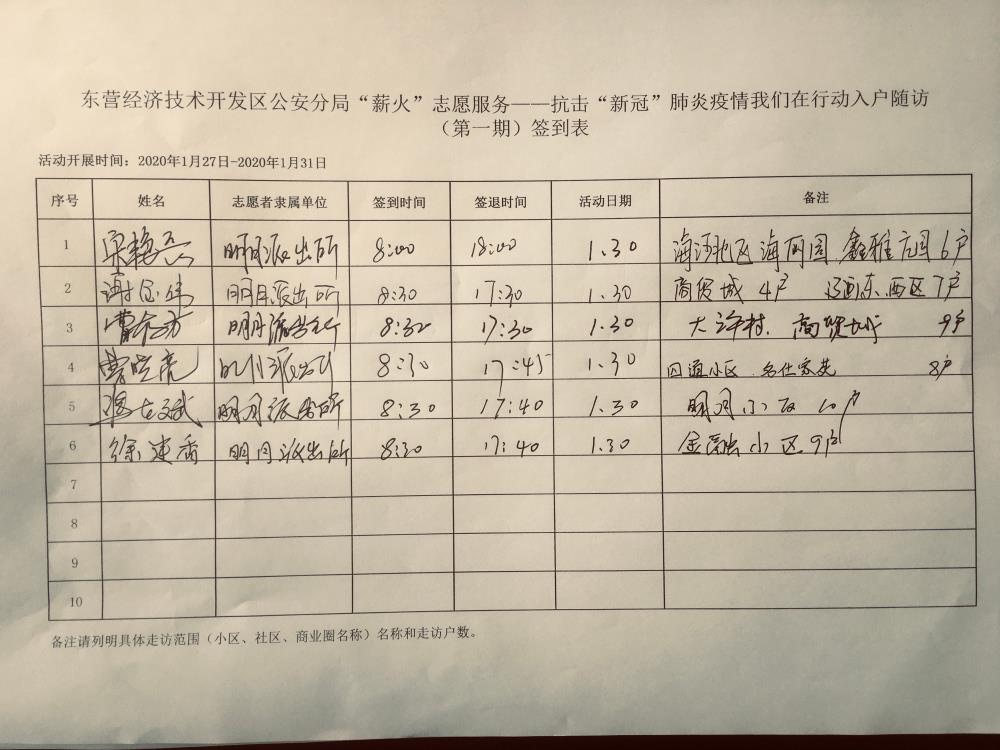 东营经济技术开发区公安分局“薪火”志愿服务——抗击“新冠”肺炎疫情我们在行动入户随访
（第一期）签到表
活动开展时间：2020年1月27日-2020年1月31日
序号 姓名 志愿者隶属单位 签到时间 签退时间 活动日期 备注
1 明月派出所 8:00 18:00 1.30 海河地区 海 园 鑫雅花园 6户
2 明月派出所 8:30 17:30 1.30 商贸城 4户 东西区7户
3 明月派出所 8:30 17:30 1.30 大许村、商贸城 9户
4 明月派出所 8:30 17:45 1.30 小区 名仕家苑 8户
5 明月派出所 8:30 17:40 1.30 明月小区 10户
6 徐建香 明月派出所 8:30 17:40 1.30 金融小区9户
7
8
9
10
备注请列明具体走访范围（小区、社区、商业圈名称）名称和走访户数。